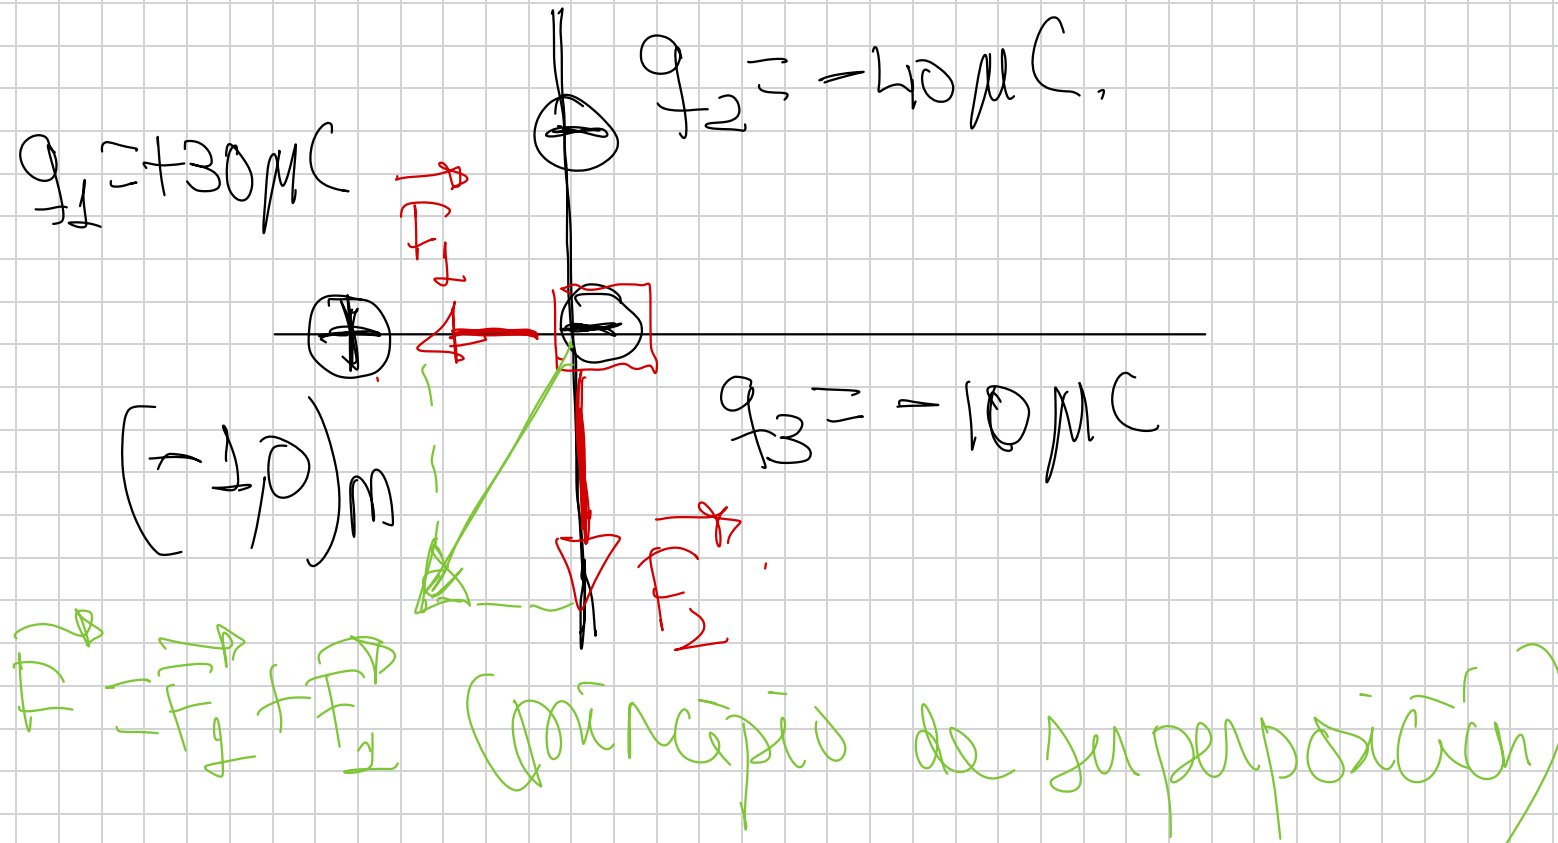 q₂ = -40 μC.
q₁ = +30 μC
F₁
q₃ = -10 μC
(-1,0) m
F₂
F = F₁ + F₂ (principio de superposición)